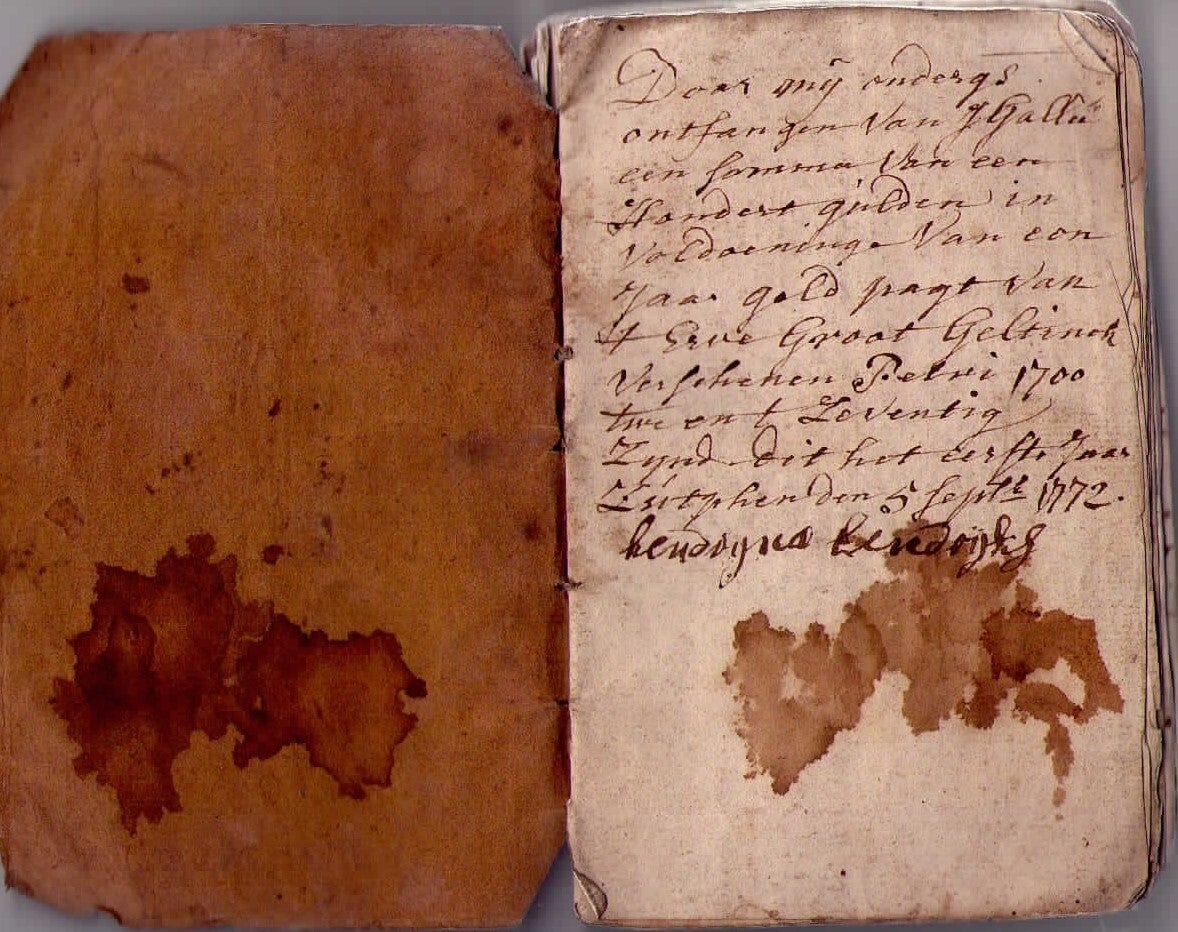 Door mij onderg:
ontfangen van J Gallé
een somma van een
Hondert gulden in
voldoeninge van een
Jaar geld pagt van
t Erve Groot Geltinck
verschenen Petri 1700
twe en t Zeventig
Zynd dit het eerste Jaar
Zutphen den 5 Septr 1772.
hendryna hendryks